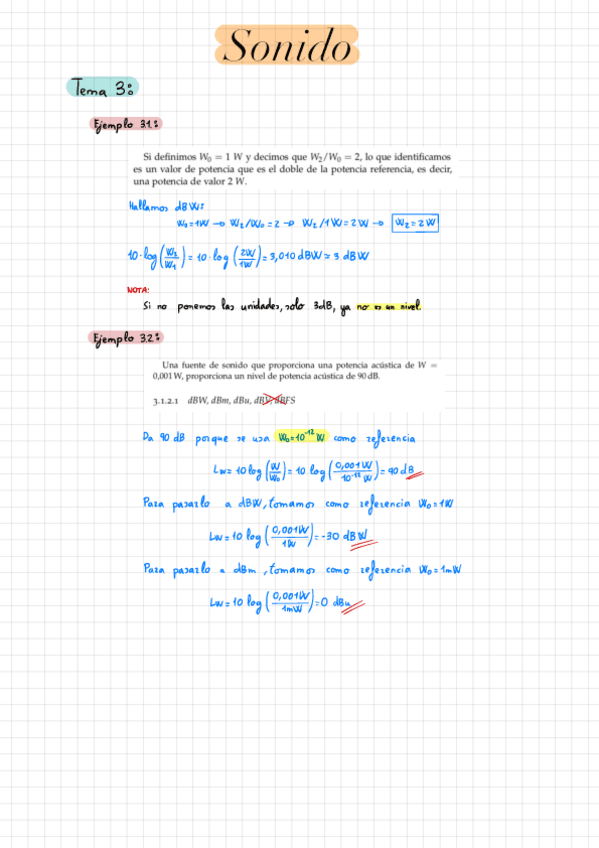 Sonido
Tema 3:
Ejemplo 3.1.:
Si definimos W₀ = 1 W y decimos que W₂/W₀ = 2, lo que identificamos
es un valor de potencia que es el doble de la potencia referencia, es decir,
una potencia de valor 2 W.
Hallamos dBW:
W₀=1W → W₂/W₀=2 → W₂/1W=2W → W₂=2W
10·log(W₂/W₁)=10·log(2W/1W)=3,010 dBW≃3 dBW
NOTA:
Si no ponemos las unidades, solo 3dB, ya no es un nivel.
Ejemplo 3.2.:
Una fuente de sonido que proporciona una potencia acústica de W =
0,001 W, proporciona un nivel de potencia acústica de 90 dB.
3.1.2.1 dBW, dBm, dBu, dBV, dBFS
Da 90 dB porque se usa W₀=10⁻¹² W como referencia
Lw=10log(W/W₀)=10 log(0,001W/10⁻¹²W)=90dB
Para pasarlo a dBW, tomamos como referencia W₀=1W
Lw=10 log(0,001W/1W)=-30 dBW
Para pasarlo a dBm, tomamos como referencia W₀=1mW
Lw=10 log(0,001W/1mW)=0 dBu